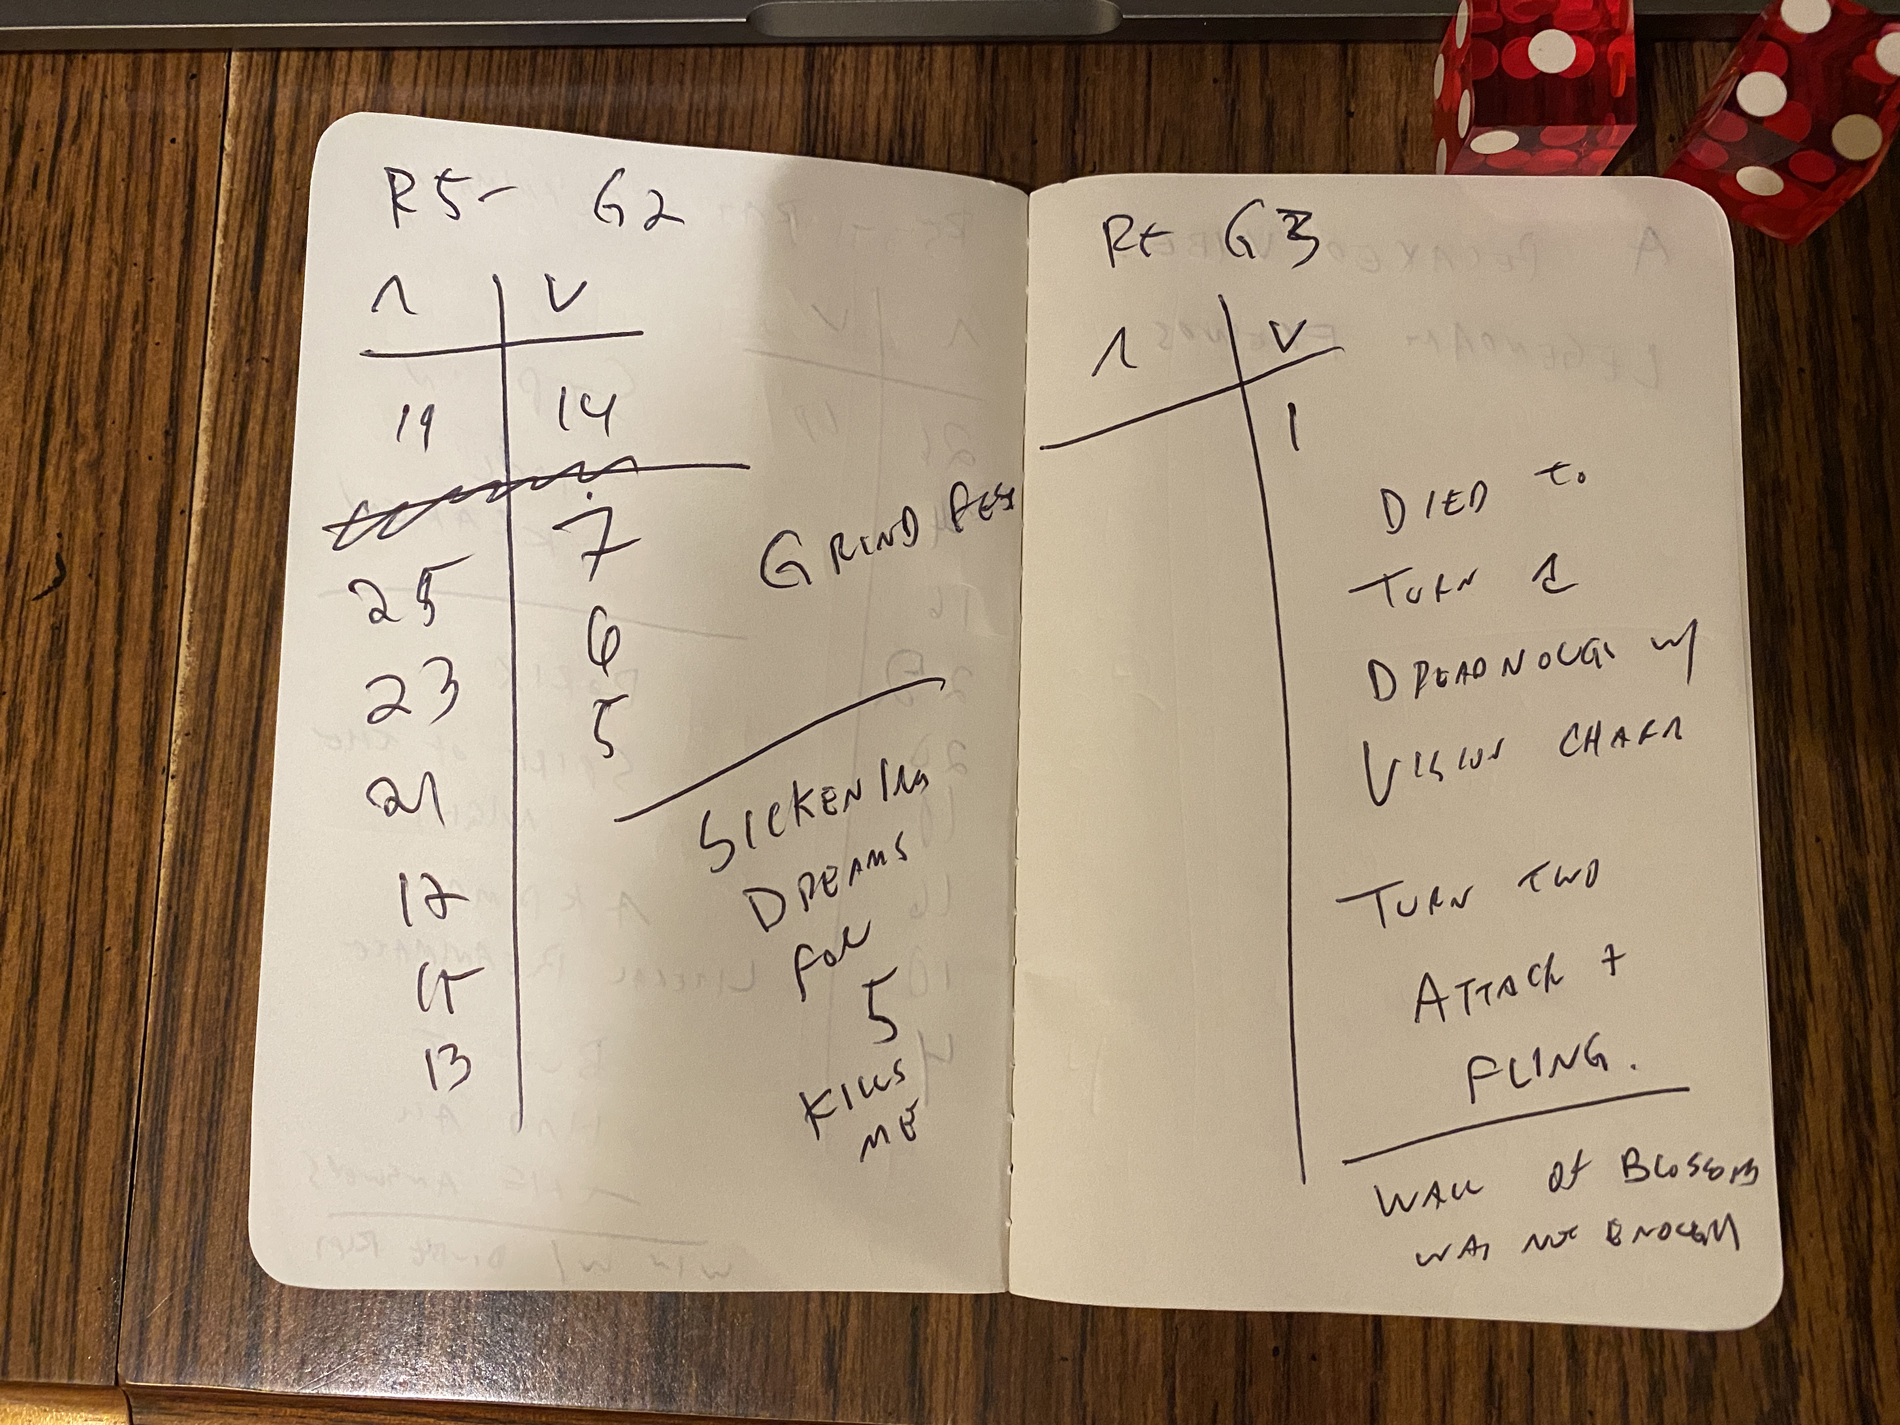 R5- G2
Λ V
19 14
7
25
6
23
5
21
17
15
13
GRIND FEST
SICKENING
DREAMS
FOR
5
KILLS
ME
R5 G3
Λ V
1
DIED TO
TURN 1
DREADNOUGHT W/
VISION CHARM
TURN TWO
ATTACK +
FLING.
WALL OF BLOSSOMS
WAS NOT ENOUGH